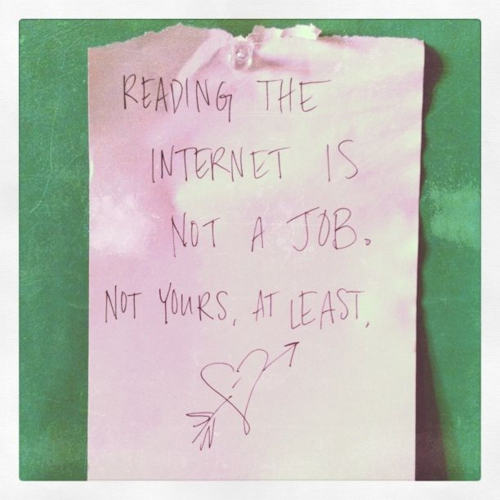 READING THE
INTERNET IS
NOT A JOB.
NOT YOURS, AT LEAST.